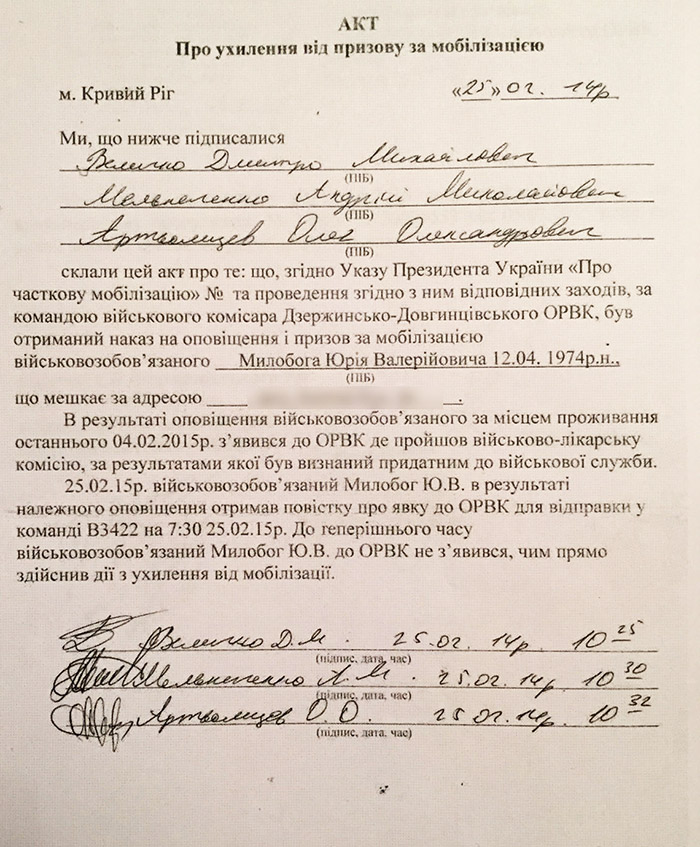 АКТ
Про ухилення від призову за мобілізацією
м. Кривий Ріг «25» 02. 14р
Ми, що нижче підписалися
Величко Дмитро Михайлович
(ПІБ)
Андрій Миколайович
(ПІБ)
Олег Олександрович
(ПІБ)
склали цей акт про те: що, згідно Указу Президента України «Про
часткову мобілізацію» № та проведення згідно з ним відповідних заходів, за
командою військового комісара Дзержинсько-Довгинцівського ОРВК, був
отриманий наказ на оповіщення і призов за мобілізацією
військовозобов’язаного Милобога Юрія Валерійовича 12.04. 1974р.н.,
(ПІБ)
що мешкає за адресою .
В результаті оповіщення військовозобов’язаного за місцем проживання
останнього 04.02.2015р. з’явився до ОРВК де пройшов військово-лікарську
комісію, за результатами якої був визнаний придатним до військової служби.
25.02.15р. військовозобов’язаний Милобог Ю.В. в результаті
належного оповіщення отримав повістку про явку до ОРВК для відправки у
команді В3422 на 7:30 25.02.15р. До теперішнього часу
військовозобов’язаний Милобог Ю.В. до ОРВК не з’явився, чим прямо
здійснив дії з ухилення від мобілізації.
Величко Д.М. 25.02. 14р. 10 25
(підпис, дата, час)
А.М. 25.02. 14р 10 30
(підпис, дата, час)
О.О. 25.02. 14р. 10 32
(підпис, дата, час)